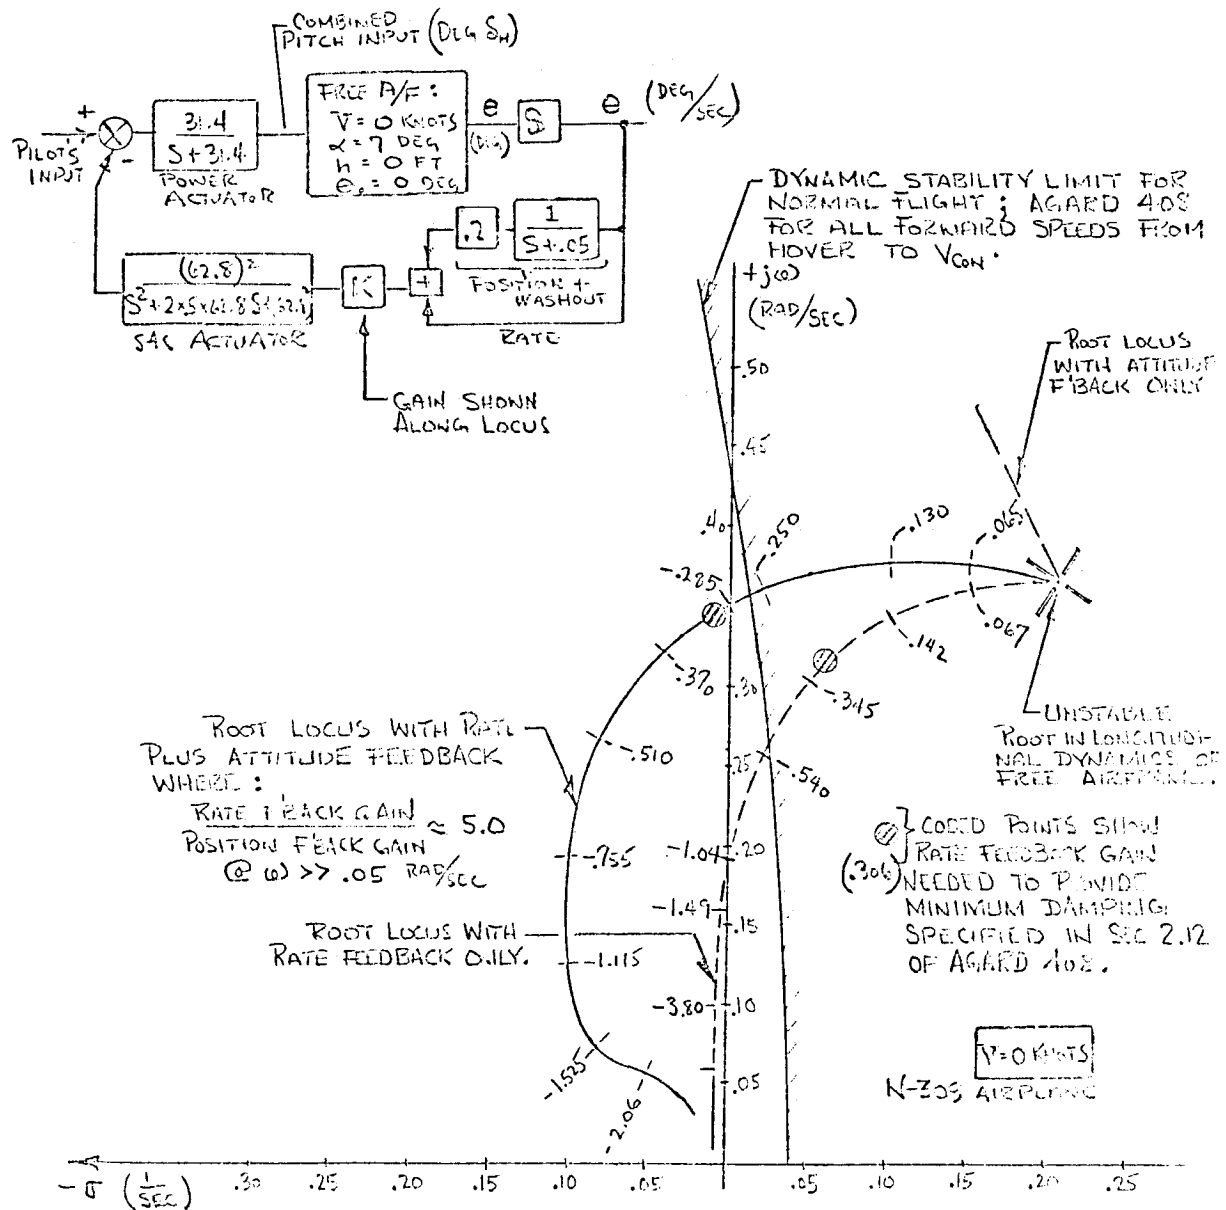 COMBINED
PITCH INPUT (DEG δH)
+
PILOT'S
INPUT
-
31.4
S+31.4
POWER
ACTUATOR
FREE A/F :
V = 0 KNOTS
α = 7 DEG
h = 0 FT
θ₀ = 0 DEG
θ
(DEG)
S
θ
(DEG/SEC)
.2
1
S+.05
POSITION +
WASHOUT
+
K
RATE
(62.8)²
SAS ACTUATOR
GAIN SHOWN
ALONG LOCUS
DYNAMIC STABILITY LIMIT FOR
NORMAL FLIGHT ; AGARD 408
FOR ALL FORWARD SPEEDS FROM
HOVER TO VCON.
+jω
(RAD/SEC)
ROOT LOCUS
WITH ATTITUDE
F'BACK ONLY
.50
.45
.40
.30
.25
.20
.15
.10
.05
.250
.130
.065
.285
.067
.142
.370
.345
.510
.540
.755
1.04
1.49
1.115
3.80
1.525
2.06
UNSTABLE
ROOT IN LONGITUDI-
NAL DYNAMICS OF
FREE AIRPLANE.
ROOT LOCUS WITH RATE
PLUS ATTITUDE FEEDBACK
WHERE :
RATE F'BACK GAIN
POSITION F'BACK GAIN
≈ 5.0
@ ω >> .05 RAD/SEC
ROOT LOCUS WITH
RATE FEEDBACK ONLY.
(.306)
CODED POINTS SHOW
RATE FEEDBACK GAIN
NEEDED TO PROVIDE
MINIMUM DAMPING
SPECIFIED IN SEC 2.12
OF AGARD 408.
V=0 KNOTS
AIRPLANE
-σ (1/SEC) .30 .25 .20 .15 .10 .05 .05 .10 .15 .20 .25